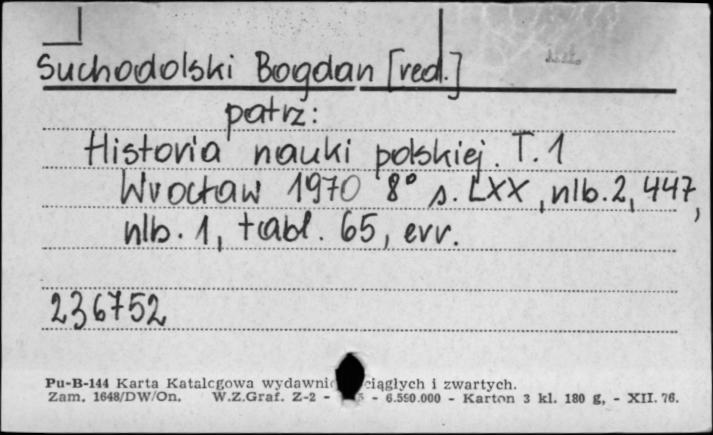 Suchodolski Bogdan [red.]
patrz:
Historia nauki polskiej. T. 1
Wrocław 1970 8° s. LXX, nlb. 2, 447,
nlb. 1, tabl. 65, err.
236752
Pu-B-144 Karta Katalogowa ciągłych i zwartych.
Zam. 1648/DW/On. W.Z.Graf. Z-2 - - 6.590.000 - Karton 3 kl. 180 g, - XII. 76.